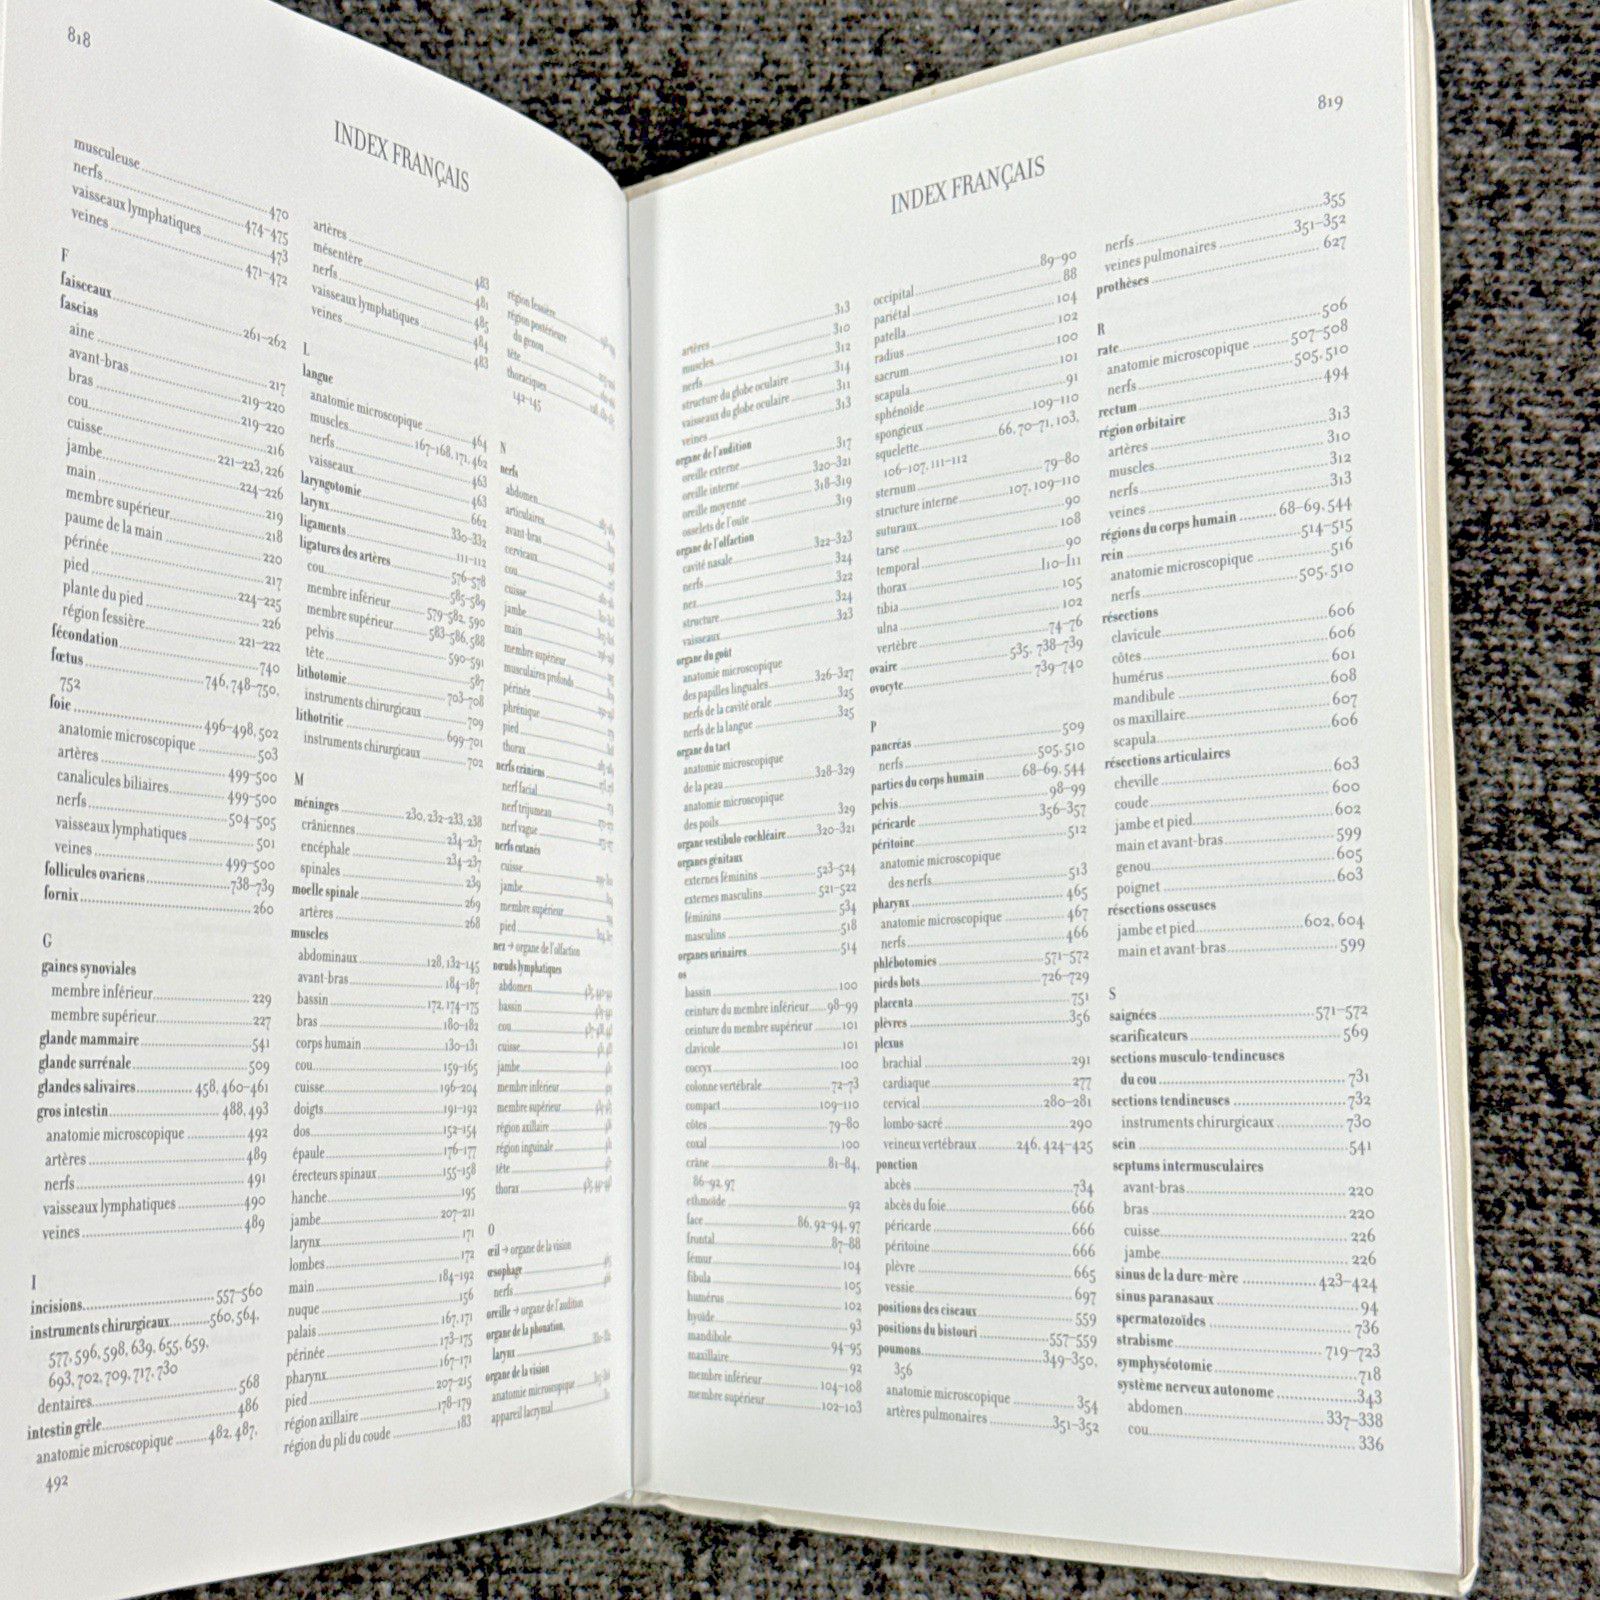 818
INDEX FRANÇAIS
musculeuse 470
nerfs 474–475
vaisseaux lymphatiques 473
veines 471–472
F
faisceaux 261–262
fascias
aine 217
avant-bras 219–220
bras 219–220
cou 216
cuisse 221–223, 226
jambe 224–226
main 219
membre supérieur 218
paume de la main 220
périnée 217
pied 224–225
plante du pied 226
région fessière 221–222
fécondation 740
fœtus 746, 748–750,
752
foie 496–498, 502
anatomie microscopique 503
artères 499–500
canalicules biliaires 499–500
nerfs 504–505
vaisseaux lymphatiques 501
veines 499–500
follicules ovariens 738–739
fornix 260
G
gaines synoviales
membre inférieur 229
membre supérieur 227
glande mammaire 541
glande surrénale 509
glandes salivaires 458, 460–461
gros intestin 488, 493
anatomie microscopique 492
artères 489
nerfs 491
vaisseaux lymphatiques 490
veines 489
I
incisions 557–560
instruments chirurgicaux 560, 564,
577, 596, 598, 639, 655, 659,
693, 702, 709, 717, 730
dentaires 568
intestin grêle 486
anatomie microscopique 482, 487,
492
artères 483
mésentère 481
nerfs 485
vaisseaux lymphatiques 484
veines 483
L
langue
anatomie microscopique 464
muscles 167–168, 171, 462
nerfs 463
vaisseaux 463
laryngotomie 662
larynx 330–332
ligaments 111–112
ligatures des artères 576–578
cou 585–589
membre inférieur 579–582, 590
membre supérieur 583–586, 588
pelvis 590–591
tête 587
lithotomie 703–708
instruments chirurgicaux 709
lithotritie 699–701
instruments chirurgicaux 702
M
méninges 230, 232–233, 238
crâniennes 234–237
encéphale 234–237
spinales 239
moelle spinale 269
artères 268
muscles
abdominaux 128, 132–145
avant-bras 184–187
bassin 172, 174–175
bras 180–182
corps humain 130–131
cou 159–165
cuisse 196–204
doigts 191–192
dos 152–154
épaule 176–177
érecteurs spinaux 155–158
hanche 195
jambe 207–211
larynx 171
lombes 172
main 184–192
nuque 156
palais 167, 171
périnée 173–175
pharynx 167–171
pied 207–215
région axillaire 178–179
région du pli du coude 183
région fessière
région postérieure
du genou
tête
thoraciques
142–145
N
nerfs
abdomen
articulaires
avant-bras
cervicaux
cou
cuisse
jambe
main
membre supérieur
musculaires profonds
périnée
phrénique
pied
thorax
nerfs crâniens
nerf facial
nerf trijumeau
nerf vague
nerfs cutanés
cuisse
jambe
membre supérieur
pied
nez → organe de l'olfaction
nœuds lymphatiques
abdomen
bassin
cou
cuisse
jambe
membre inférieur
membre supérieur
région axillaire
région inguinale
tête
thorax
O
œil → organe de la vision
œsophage
nerfs
oreille → organe de l'audition
organe de la phonation,
larynx
organe de la vision
anatomie microscopique
appareil lacrymal
819
INDEX FRANÇAIS
artères 313
muscles 310
nerfs 312
structure du globe oculaire 314
vaisseaux du globe oculaire 311
veines 313
organe de l'audition
oreille externe 317
oreille interne 320–321
oreille moyenne 318–319
osselets de l'ouïe 319
organe de l'olfaction
cavité nasale 322–323
nerfs 324
nez 322
structure 324
vaisseaux 323
organe du goût
anatomie microscopique
des papilles linguales 326–327
nerfs de la cavité orale 325
nerfs de la langue 325
organe du tact
anatomie microscopique
de la peau 328–329
anatomie microscopique
des poils 329
organe vestibulo-cochléaire 320–321
organes génitaux
externes féminins 523–524
externes masculins 521–522
féminins 534
masculins 518
organes urinaires 514
os
bassin 100
ceinture du membre inférieur 98–99
ceinture du membre supérieur 101
clavicole 101
coccyx 100
colonne vertébrale 72–73
compact 109–110
côtes 79–80
coxal 100
crâne 81–84,
86–92, 97
ethmoïde 92
face 86, 92–94, 97
frontal 87–88
fémur 104
fibula 105
humérus 102
hyoïde 93
mandibole 94–95
maxillaire 92
membre inférieur 104–108
membre supérieur 102–103
occipital 89–90
pariétal 88
patella 104
radius 102
sacrum 100
scapula 101
sphénoïde 91
spongieux 109–110
squelette 66, 70–71, 103,
106–107, 111–112
sternum 79–80
structure interne 107, 109–110
suturaux 90
tarse 108
temporal 90
thorax 110–111
tibia 105
ulna 102
vertèbre 74–76
ovaire 535, 738–739
ovocyte 739–740
P
pancréas 509
nerfs 505, 510
parties du corps humain 68–69, 544
pelvis 98–99
péricarde 356–357
péritoine 512
anatomie microscopique
des nerfs 513
pharynx 465
anatomie microscopique 467
nerfs 466
phlébotomies 571–572
pieds bots 726–729
placenta 751
plèvres 356
plexus
brachial 291
cardiaque 277
cervical 280–281
lombo-sacré 290
veineux vertébraux 246, 424–425
ponction
abcès 734
abcès du foie 666
péricarde 666
péritoine 666
plèvre 665
vessie 697
positions des ciseaux 559
positions du bistouri 557–559
poumons 349–350,
356
anatomie microscopique 354
artères pulmonaires 351–352
nerfs 355
veines pulmonaires 351–352
prothèses 627
R
rate 506
anatomie microscopique 507–508
nerfs 505, 510
rectum 494
région orbitaire
artères 313
muscles 310
nerfs 312
veines 313
régions du corps humain 68–69, 544
rein 514–515
anatomie microscopique 516
nerfs 505, 510
résections
clavicule 606
côtes 606
humérus 601
mandibule 608
os maxillaire 607
scapula 606
résections articulaires
cheville 603
coude 600
jambe et pied 602
main et avant-bras 599
genou 605
poignet 603
résections osseuses
jambe et pied 602, 604
main et avant-bras 599
S
saignées 571–572
scarificateurs 569
sections musculo-tendineuses
du cou 731
sections tendineuses 732
instruments chirurgicaux 730
sein 541
septums intermusculaires
avant-bras 220
bras 220
cuisse 226
jambe 226
sinus de la dure-mère 423–424
sinus paranasaux 94
spermatozoïdes 736
strabisme 719–723
symphyséotomie 718
système nerveux autonome 343
abdomen 337–338
cou 336